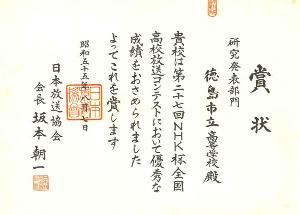 賞状
研究発表部門
徳島市立高等学校殿
貴校は第二十七回NHK杯全国
高校放送コンテストにおいて優秀な
成績をおさめられました
よってこれを賞します
昭和五十五年八月七日
日本放送協会
会長 坂本朝一